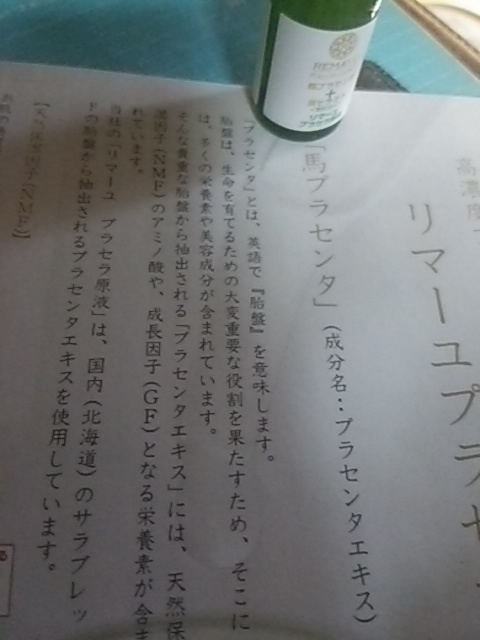 REMA
リマーユ
高濃度
リマーユプラセ
「馬プラセンタ」（成分名：プラセンタエキス）
「プラセンタ」とは、英語で『胎盤』を意味します。
胎盤は、生命を育てるための大変重要な役割を果たすため、そこに
は、多くの栄養素や美容成分が含まれています。
そんな貴重な胎盤から抽出される「プラセンタエキス」には、天然保
湿因子（NMF）のアミノ酸や、成長因子（GF）となる栄養素が含ま
れています。
当社の「リマーユ プラセラ原液」は、国内（北海道）のサラブレッ
ドの胎盤から抽出されるプラセンタエキスを使用しています。
【天然保湿因子（NMF）】